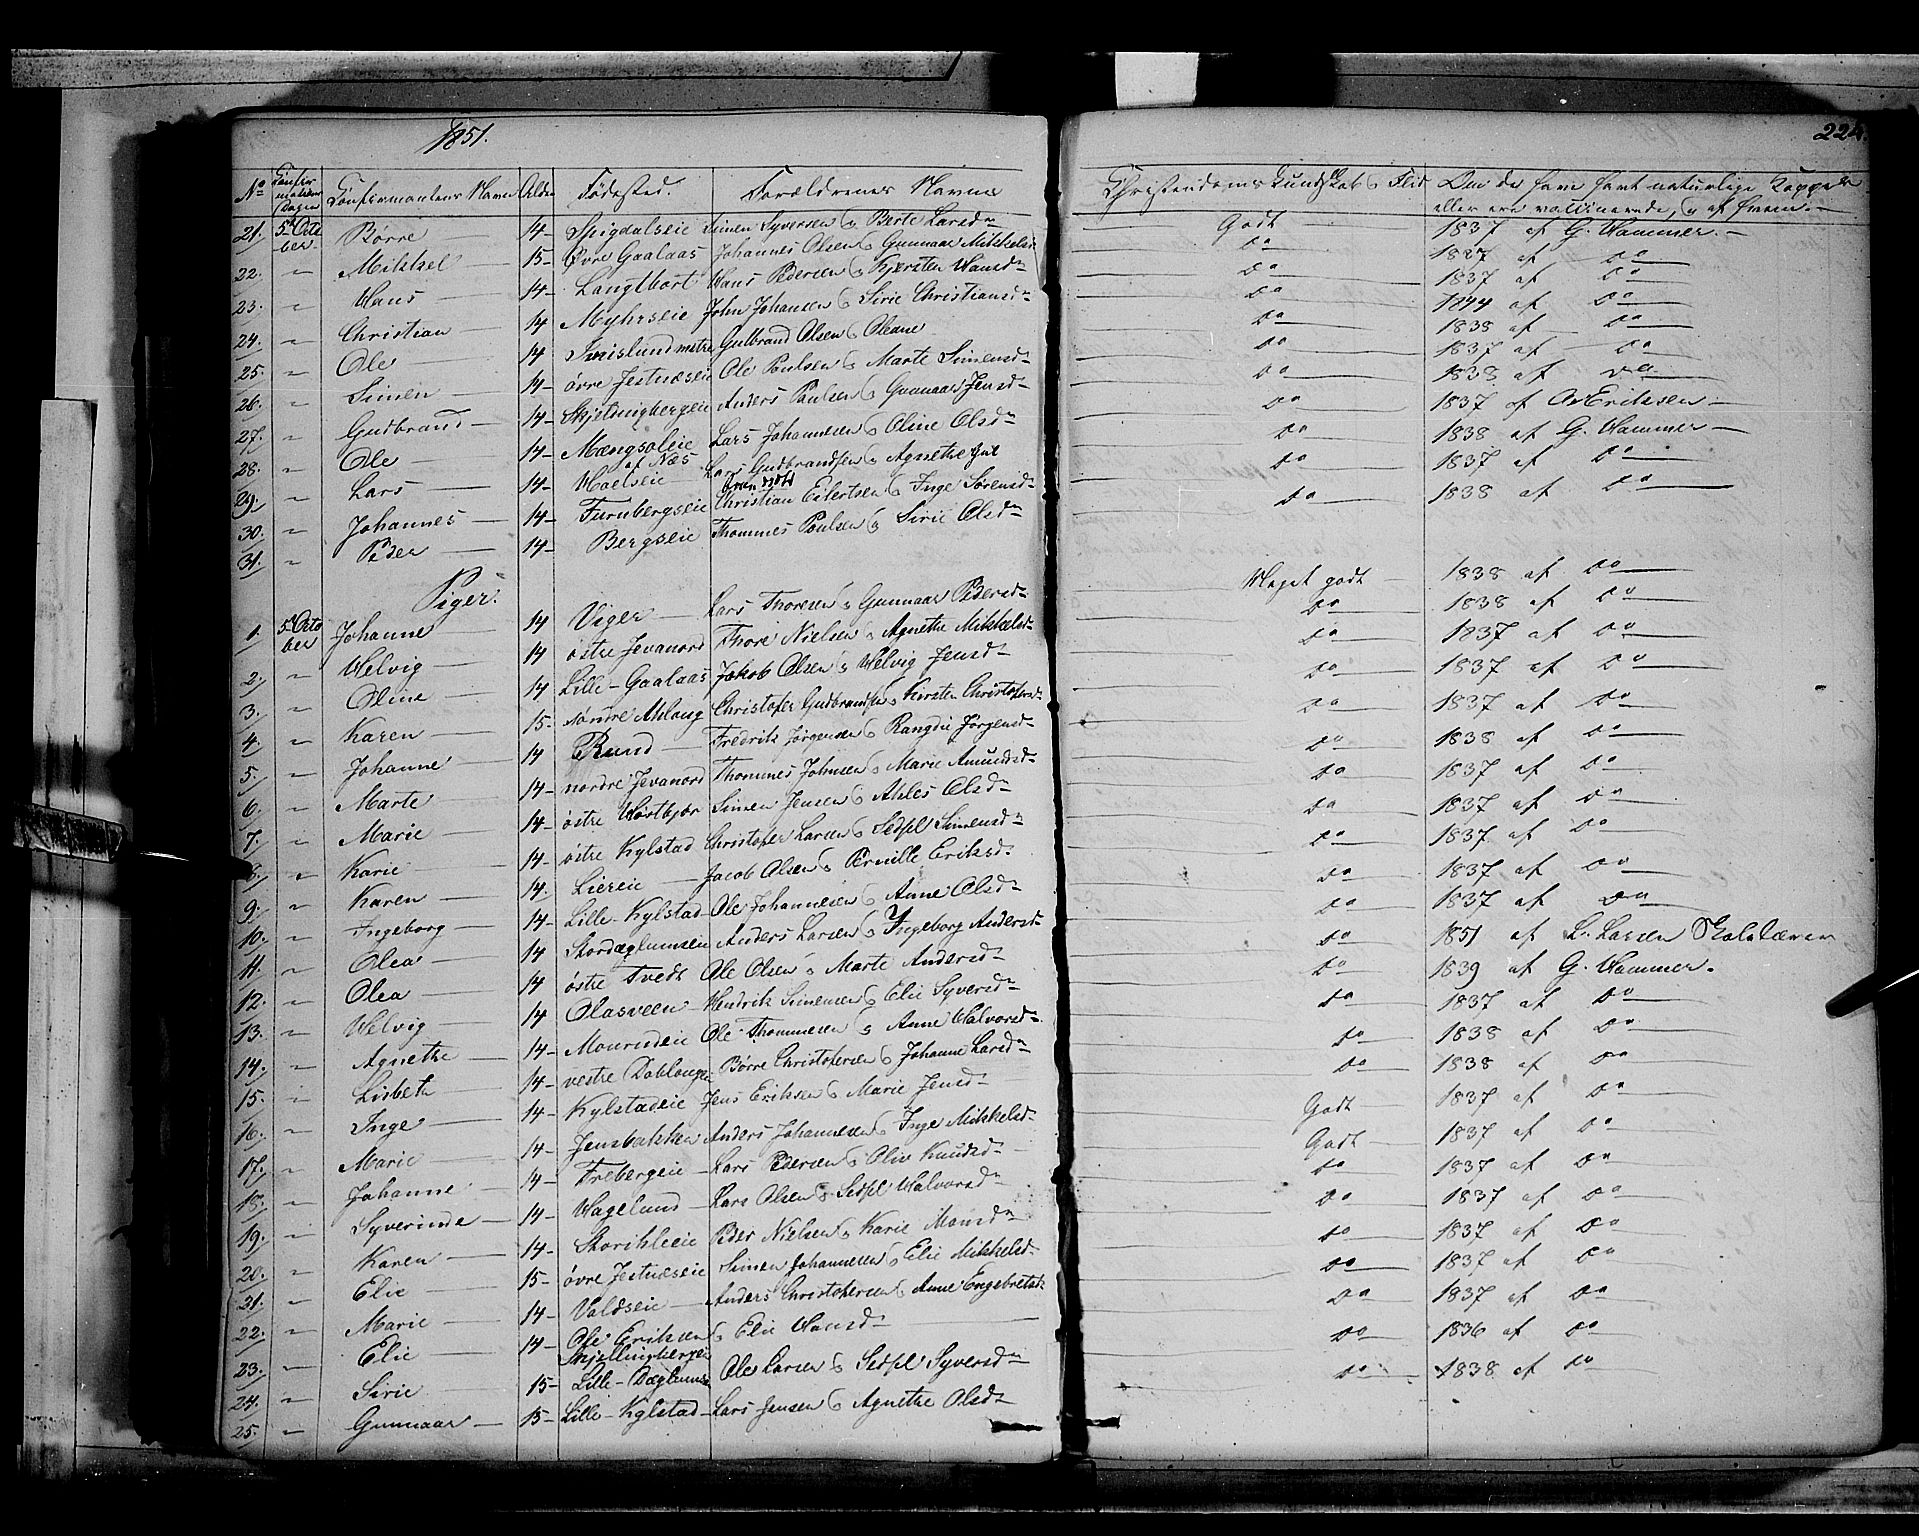 1851.
224.
No Confirmations Dagen Confirmantens Navn Alder Fødested. Forældrenes Navne Christendoms Kundskab & Flid Om de have havt naturlige Kopper eller ere vaccinerede, & af hvem.
21. 5te October Børre 14 Spigdalseie Simen Syversen & Berte Larsdn Godt 1837 af G. Hammer.
22. " Mikkel 15 Øvre Gaalaas Johannes Olsen & Gunnaar Mikkelsd Do 1837 af Do
23. " Hans 14 Langtbort Hans Pedersen & Kjersten Hansdn Do 1837 af Do
24. " Christian 14 Myhrseie John Johansen & Sirie Christiansdn Do 1844 af Do
25. " Ole 14 Smislund mstre Gulbrand Olsen & Oleane Do 1838 af Do
26. " Simen 14 øvre Jestnæseie Ole Poulsen & Marte Simensdn Do 1837 af Do
27. " Gudbrand 14 Skjeldingbergeie Anders Poulsen & Gunnaar Jensdn Do 1838 af Do
28. " Ole 14 Mængsoleie af Næs Lars Johannesen & Oline Olsdn Do 1837 af O. Eriksen
29. " Lars 14 Hoelseie Lars Gudbrandsen & Agnethe Do 1838 af G. Hammer
30. " Johannes 14 Furubergseie Christian Eilertsen & Inge Sørensdn Do 1837 af Do
31. " Peder 14 Bergseie Thommes Poulsen & Sirie Olsdn Do 1838 af Do
Piger.
1. 5te October Johanne 14 Viger Lars Thoresen & Gunnaar Pedersdn Meget godt 1838 af Do
2. " Helvig 14 østre Jevanord Thore Nielsen & Agnethe Mikkelsdn Do 1838 af Do
3. " Oline 14 Lille-Gaalaas Jakob Olsen & Helvig Jensdn Do 1837 af Do
4. " Karen 15 nørdre Ahlang Christofer Gudbrandsen & Kirsten Christofersdn Do 1837 af Do
5. " Johanne 14 Rund Fredrik Jørgensen & Rangdie Jørgensdn Do 1837 af Do
6. " Marte 14 nordre Jevanord Thommes Johnsen & Marie Amundsdn Do 1838 af Do
7. " Marie 14 østre Hørtbjør Simen Jensen & Ahles Olsdn Do 1837 af Do
8. " Karie 14 østre Kylstad Christofer Larsen & Sedsel Simensdn Do 1837 af Do
9. " Karen 14 Liereie Jacob Olsen & Pernille Eriksd. Do 1837 af Do
10. " Ingeborg 14 Lille-Kylstad Ole Johannesen & Anne Olsdn Do 1837 af Do
11. " Olea 14 Stordæglumseie Anders Larsen & Ingeborg Andersdn Do 1837 af Do
12. " Olea 14 østre Tvedt Ole Olsen & Marte Andersdn Do 1851 af L. Larsen Skolelærer
13. " Helvig 14 Olasveen Hendrik Simensen & Elie Syversdn Do 1839 af G. Hammer.
14. " Agnethe 14 Mourudeie Ole Thommesen & Anne Halvorsdn Do 1837 af Do
15. " Lisbeth 14 vestre Dobloug Børre Christofersen & Johanne Larsdn Do 1838 af Do
16. " Inge 14 Kylstadeie Jens Eriksen & Marie Jensdn Do 1838 af Do
17. " Marie 14 Jensbakken Anders Johannesen & Inge Mikkelsdn Godt 1837 af Do
18. " Johanne 14 Frebergeie Lars Pedersen & Olia Knudsdn Godt 1837 af Do
19. " Syverinde 14 Hagelund Lars Olsen & Sedsel Halvorsdn Do 1837 af Do
20. " Karen 14 Storihleeie Peder Nielsen & Karie Monsdn Do 1837 af Do
21. " Elie 15 øvre Jestnæseie Simen Johannesen & Elie Mikkelsdn Do 1837 af Do
22. " Marie 14 Valdseie Anders Christofersen & Anne Engebretsd Do 1837 af Do
23. " Elie 14 Skjellingbergeie Ole Eriksen & Elie Hansdn Do 1837 af Do
24. " Sirie 15 Lille-Dæglumseie Ole Larsen & Sedsel Syversdn Do 1836 af Do
25. " Gunnaar 15 Lille-Kylstad Lars Jensen & Agnethe Olsdn Do 1838 af Do